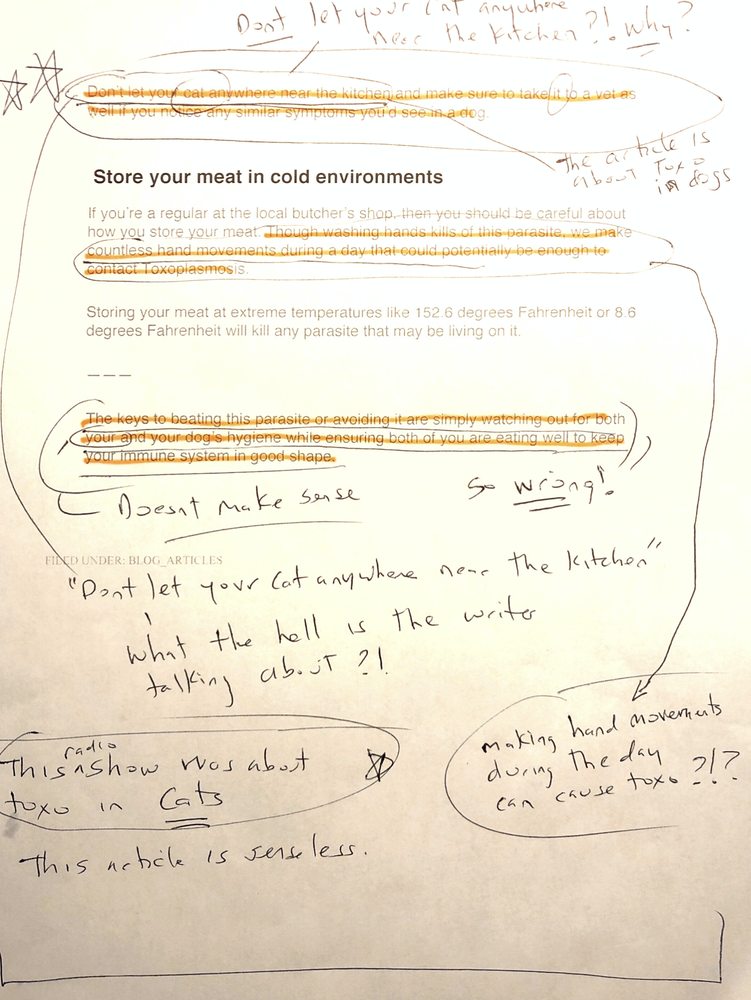 Dont let your cat anywhere
near the kitchen?!. Why?
Don't let your cat anywhere near the kitchen and make sure to take it to a vet as
well if you notice any similar symptoms you'd see in a dog.
the article is
about Toxo
in dogs
Store your meat in cold environments
If you're a regular at the local butcher's shop, then you should be careful about
how you store your meat. Though washing hands kills of this parasite, we make
countless hand movements during a day that could potentially be enough to
contact Toxoplasmosis.
Storing your meat at extreme temperatures like 152.6 degrees Fahrenheit or 8.6
degrees Fahrenheit will kill any parasite that may be living on it.
———
The keys to beating this parasite or avoiding it are simply watching out for both
your and your dog's hygiene while ensuring both of you are eating well to keep
your immune system in good shape.
Doesnt make sense
so wrong!
FILED UNDER: BLOG_ARTICLES
"Dont let your cat anywhere near the kitchen"
what the hell is the writer
talking about ?!
making hand movements
during the day
can cause toxo ?!?
This radio show was about
toxo in Cats
This article is senseless.